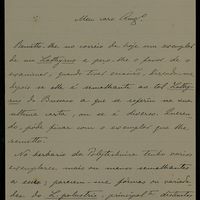 Meu caro Amg.º
Remetto-lhe no correio de hoje um exemplar
de um Lathyrus e peço-lhe o favor de
o examinar, quando tiver occasião, dizendo-me
depois se elle é semelhante ao tal Lathy-
rus do Bussaco a que se referiu na sua
ultima carta, ou se é diverso. Queren-
do, póde ficar com o exemplar que lhe
remetto.
No herbario da Polytechnica tenho varios
exemplares, mais ou menos semelhantes
a este; parecem-me formas ou varieda-
des do L. palustris, principal.te distinctos